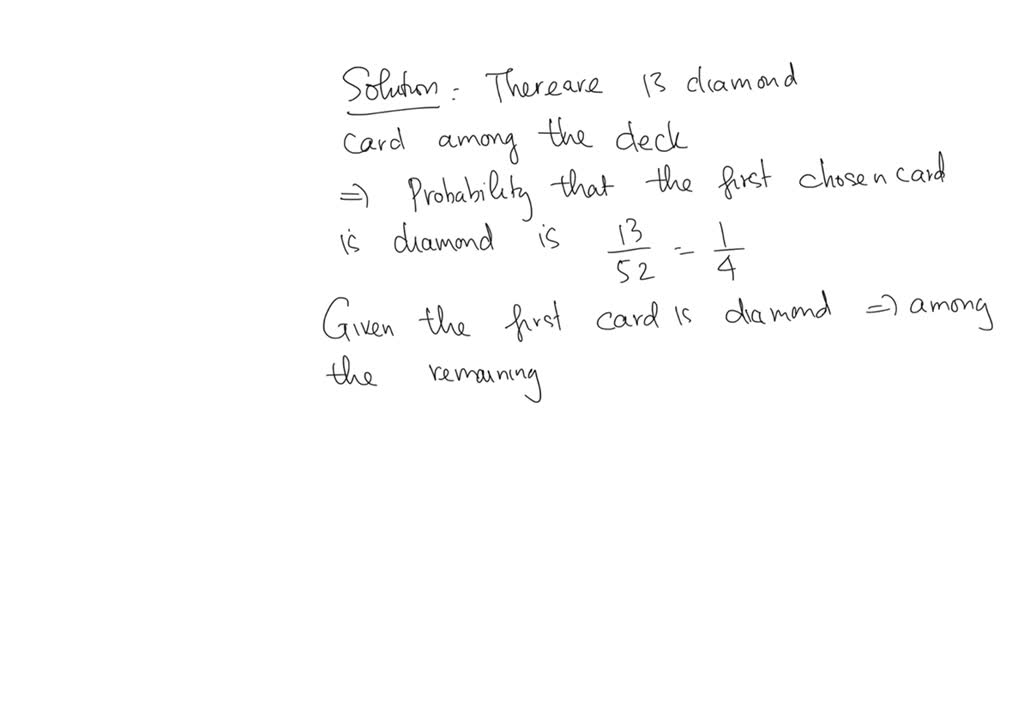 Solution: Thereare 13 diamond
card among the deck
⇒ Probability that the first chosen card
is diamond is 13/52 = 1/4
Given the first card is diamond ⇒ among
the remaining